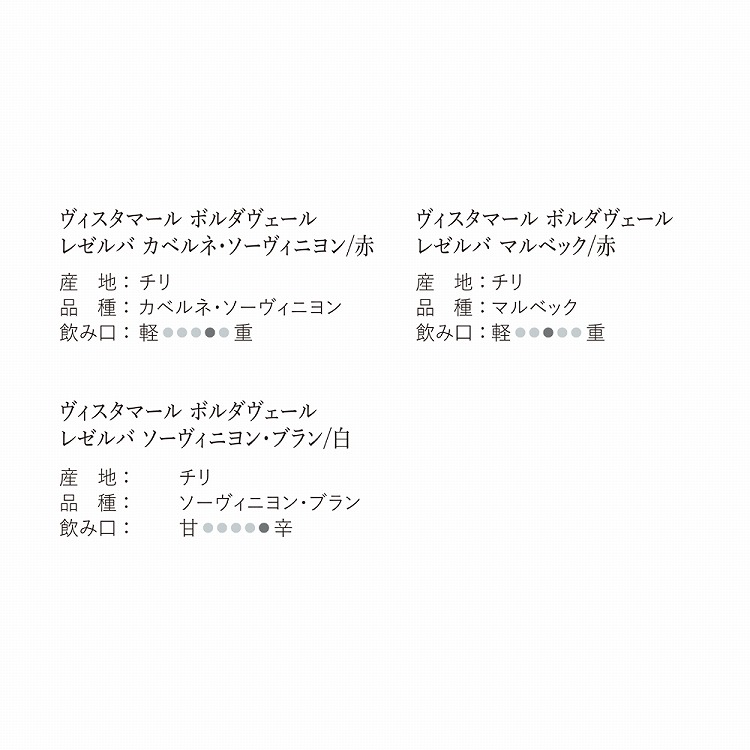 ヴィスタマール ボルダヴェール
レゼルバ カベルネ・ソーヴィニヨン/赤
産　地： チリ
品　種： カベルネ・ソーヴィニヨン
飲み口： 軽●●●●●重
ヴィスタマール ボルダヴェール
レゼルバ マルベック/赤
産　地：チリ
品　種：マルベック
飲み口：軽●●●●●重
ヴィスタマール ボルダヴェール
レゼルバ ソーヴィニヨン・ブラン/白
産　地：　　チリ
品　種：　　ソーヴィニヨン・ブラン
飲み口：　　甘●●●●●辛